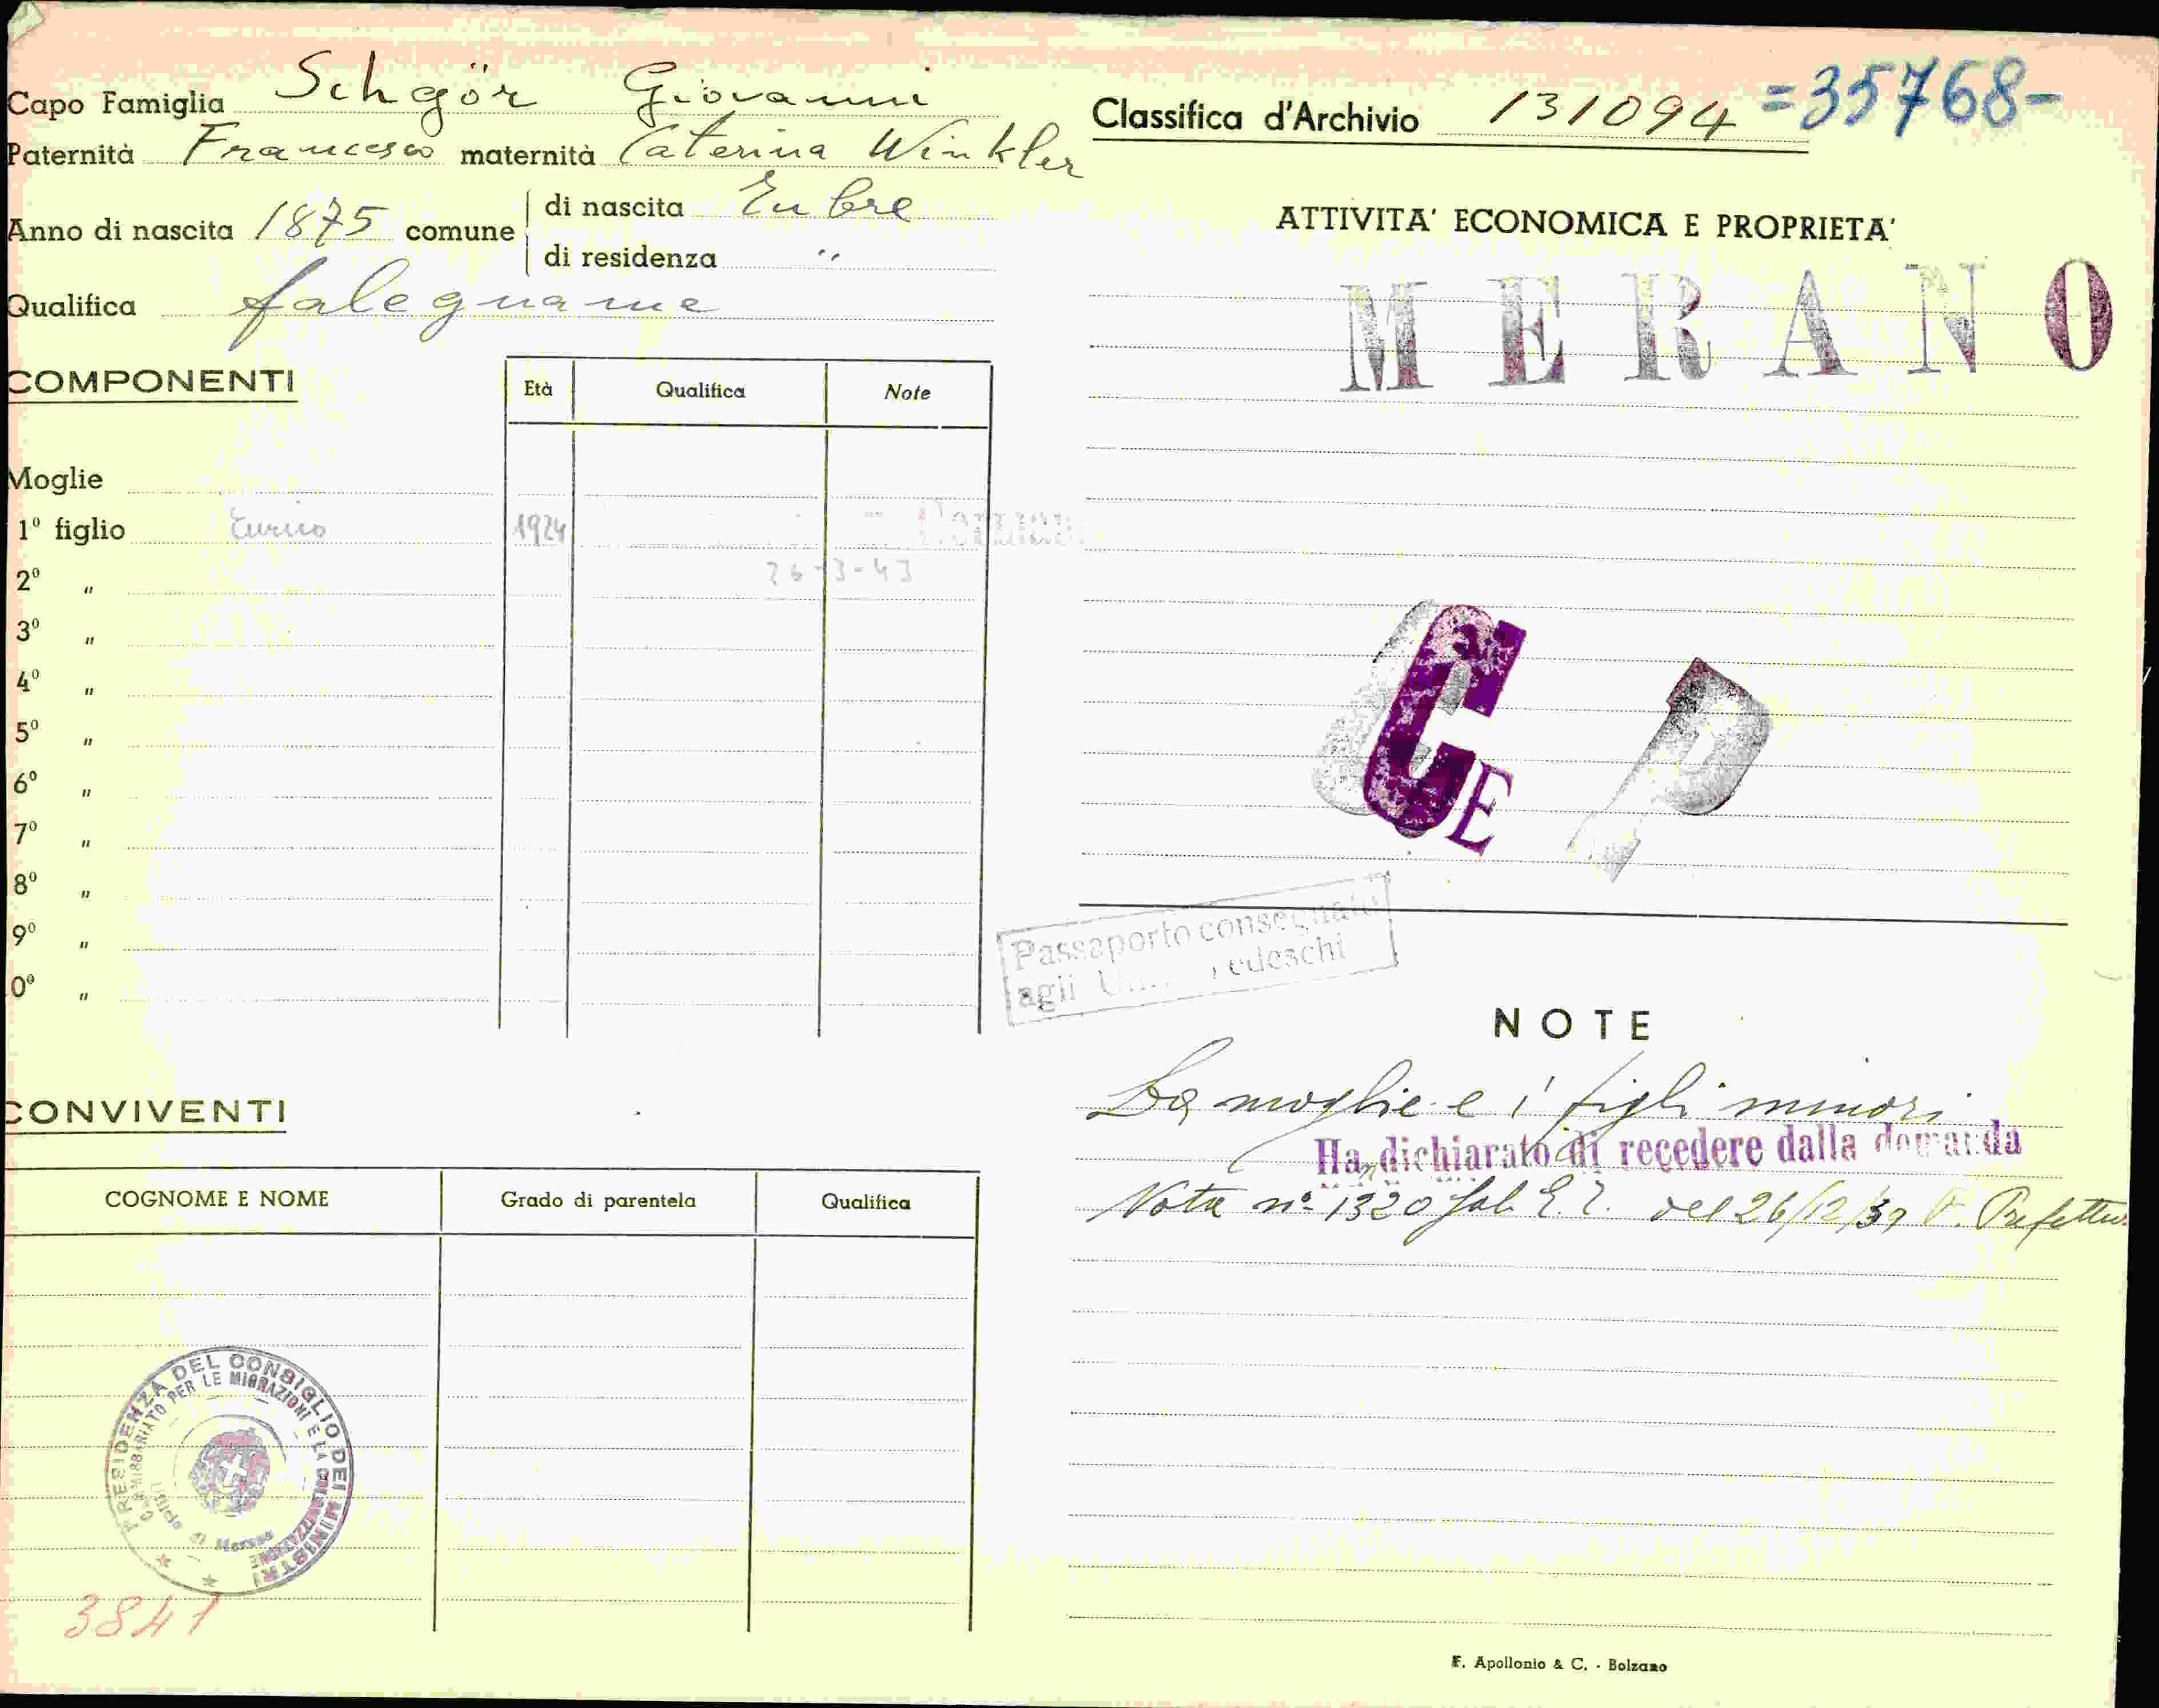 Capo Famiglia Schgör Giovanni
Paternità Francesco maternità Caterina Winkler
Anno di nascita 1875 comune
di nascita Tubre
di residenza "
Qualifica falegname
COMPONENTI
Età Qualifica Note
Moglie
1º figlio Enrico 1924
2º " 26-3-43
3º "
4º "
5º "
6º "
7º "
8º "
9º "
0º "
CONVIVENTI
COGNOME E NOME Grado di parentela Qualifica
PRESIDENZA DEL CONSIGLIO DEI MINISTRI
COMMISSARIATO PER LE MIGRAZIONI E LA COLONIZZAZIONE
Ufficio di Merano
3841
Classifica d'Archivio 131094 =35768-
ATTIVITA' ECONOMICA E PROPRIETA'
MERANO
C E P
Passaporto consegnato
agli Tedeschi
NOTE
La moglie e i figli minori
Ha dichiarato di recedere dalla domanda
Nota nº 1320 Gab. del 26/12/39
F. Apollonio & C. - Bolzano